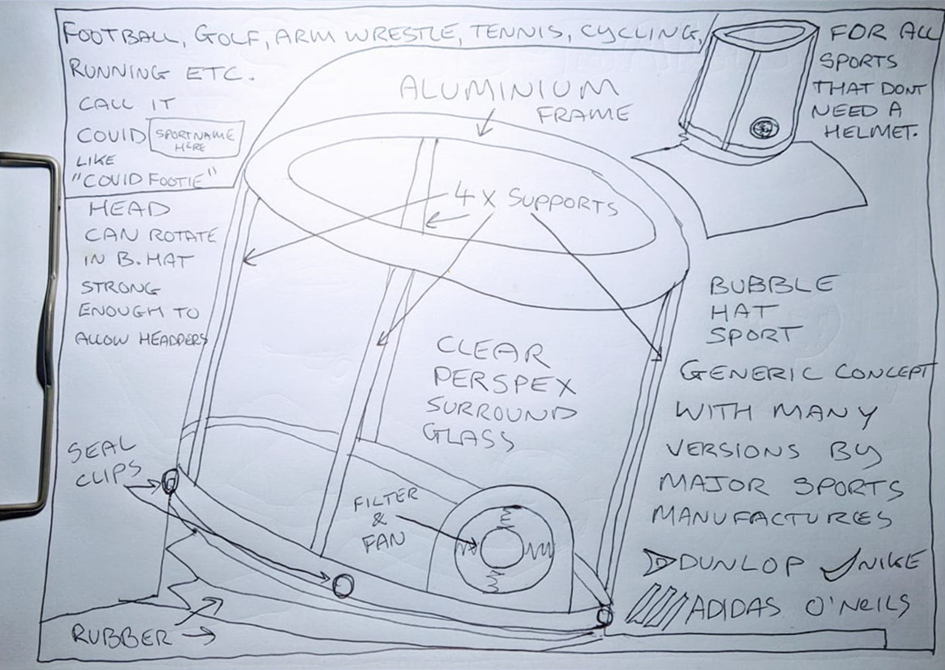 FOOTBALL, GOLF, ARM WRESTLE, TENNIS, CYCLING,
RUNNING ETC.
CALL IT
COVID SPORTNAME
HERE
LIKE
"COVID FOOTIE"
FOR ALL
SPORTS
THAT DONT
NEED A
HELMET.
ALUMINIUM
FRAME
4 X SUPPORTS
HEAD
CAN ROTATE
IN B.HAT
STRONG
ENOUGH TO
ALLOW HEADDERS
CLEAR
PERSPEX
SURROUND
GLASS
BUBBLE
HAT
SPORT
GENERIC CONCEPT
WITH MANY
VERSIONS BY
MAJOR SPORTS
MANUFACTURES
DUNLOP NIKE
ADIDAS O'NEILS
SEAL
CLIPS
FILTER
&
FAN
RUBBER